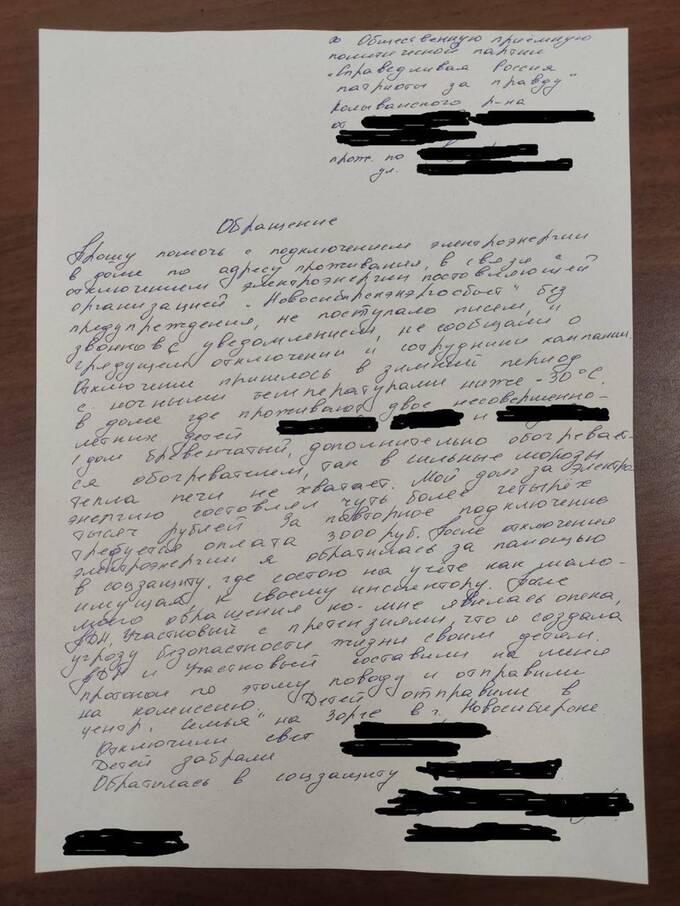 в Общественную приёмную
политической партии
"Справедливая Россия
патриоты за правду"
Колыванского р-на
от
прож. по
ул.
Обращение
Прошу помочь с подключением электроэнергии
в доме по адресу проживания, в связи с
отключением электроэнергии поставляющей
организацией "Новосибирскэнэргосбыт" без
предупреждения, не поступало писем, и
звонков с уведомлением, не сообщали о
грядущем отключении и сотрудники кампании.
Отключение пришлось в зимний период
с ночными температурами ниже -30°С.
в доме где проживают двое несовершенно-
летних детей и
(дом бревенчатый, дополнительно обогревает-
ся обогревателем, так в сильные морозы
тепла печи не хватает. Мой долг за электро
энергию составлял чуть более четырёх
тысяч рублей. За повторное подключение
требуется оплата 3000 руб. После отключения
электроэнергии я обратилась за помощью
в соцзащиту, где состою на учёте как мало-
имущая, к своему инспектору. После
моего обращения ко-мне явилась опека,
ПДН, участковый с претензиями, что я создала
угрозу безопастности жизни своим детям.
ПДН и участковый составили на меня
протокол по этому поводу и отправили
на комиссию. Детей отправили в
центр "Семья" на Зорге в г. Новосибирске
Отключили свет
Детей забрали
Обратилась в соцзащиту